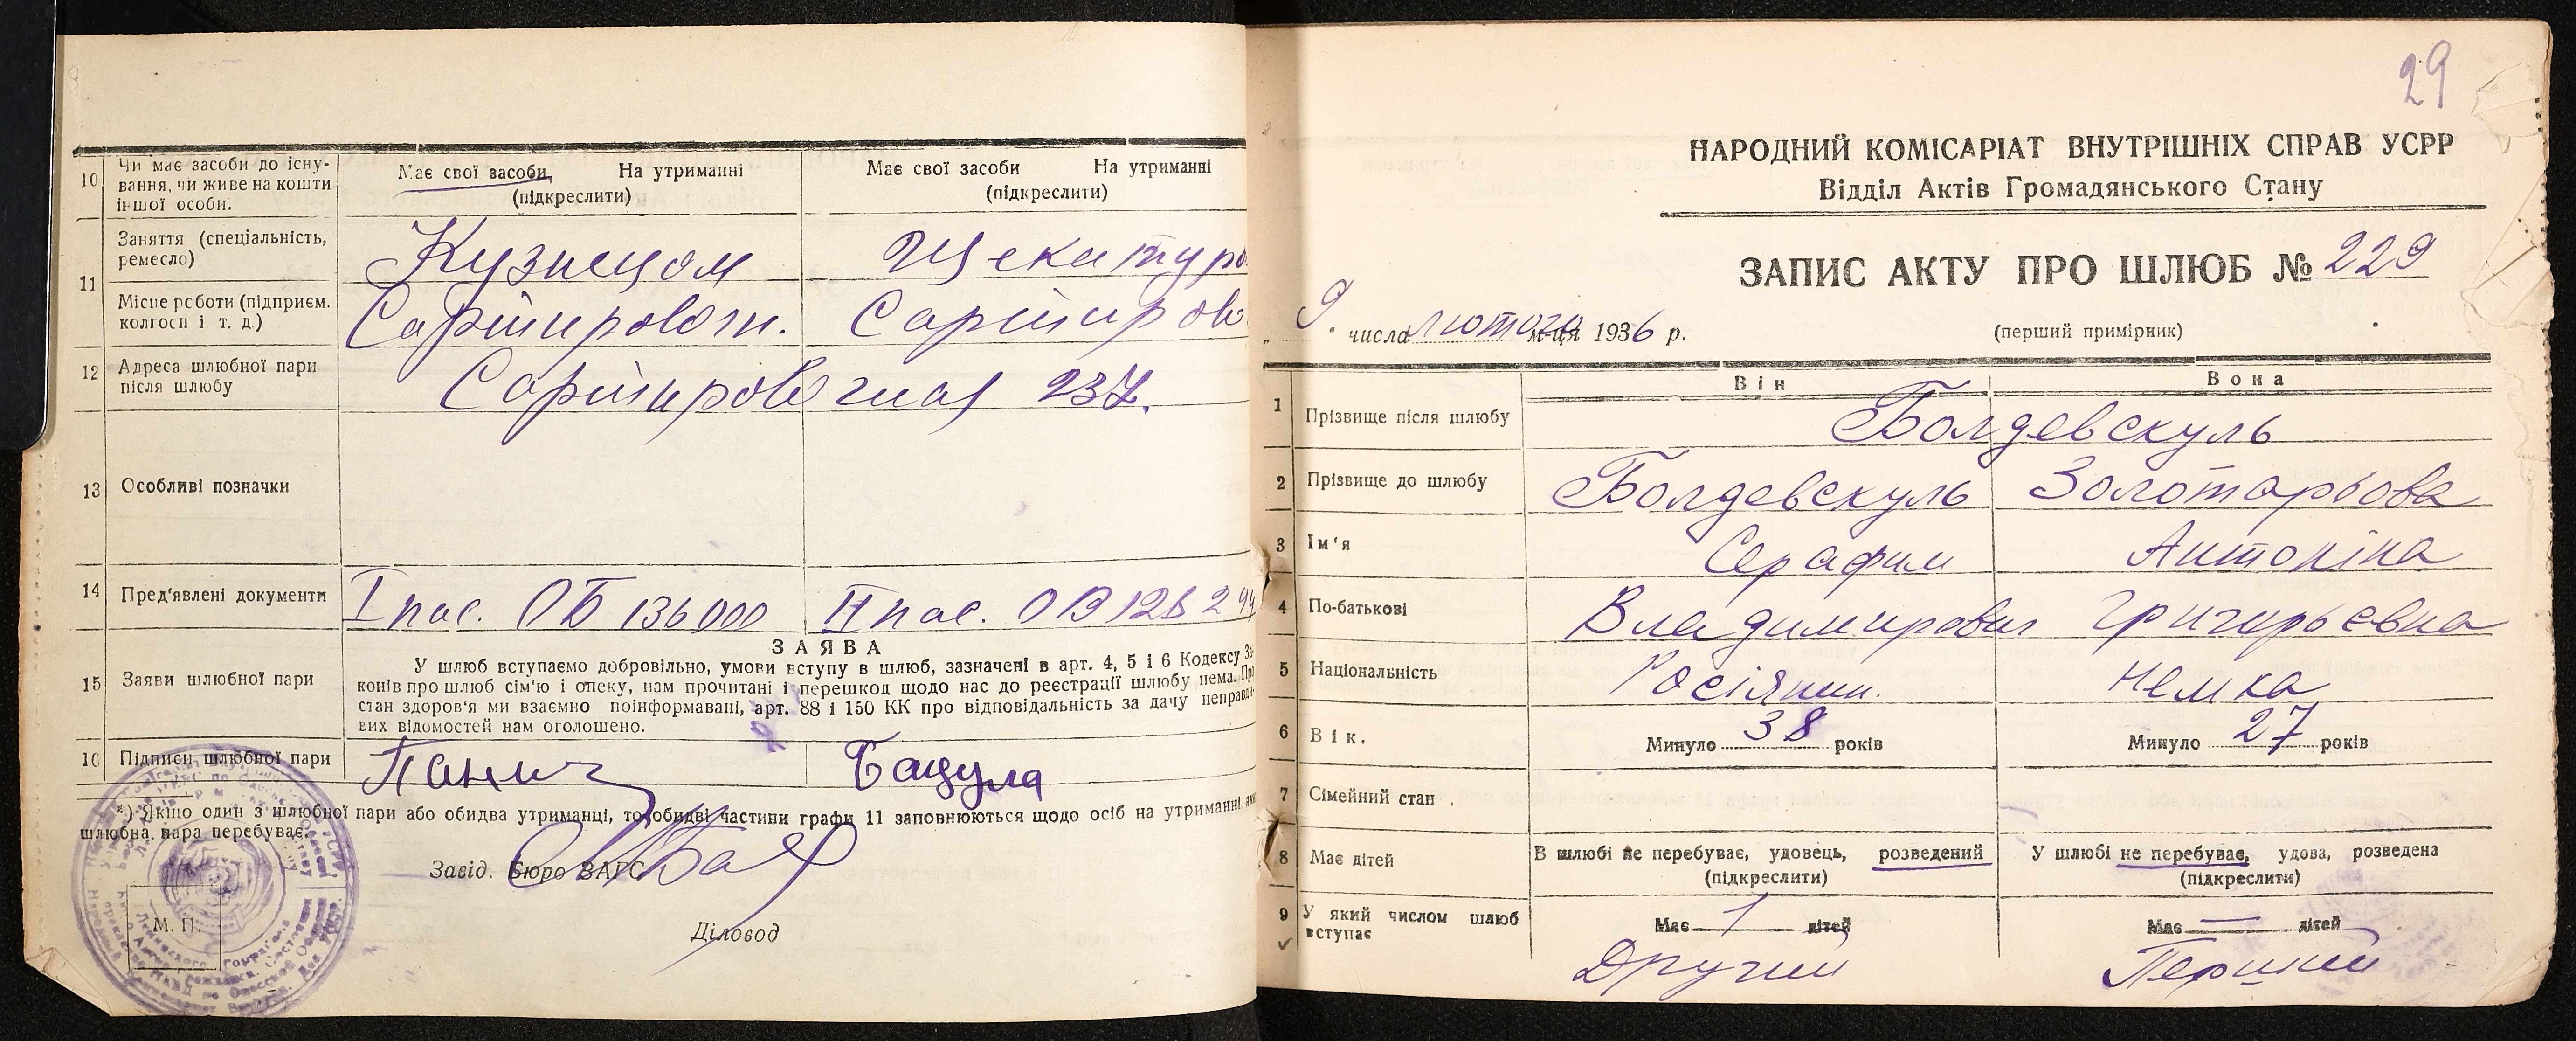 10 Чи має засоби до існу-
вання, чи живе на кошти
іншої особи.
Має свої засоби На утриманні
(підкреслити)
Має свої засоби На утриманні
(підкреслити)
11 Заняття (спеціальність,
ремесло)
Кузнецом
Щекатуро
Місце роботи (підприєм.
колгосп і т. д.)
12 Адреса шлюбної пари
після шлюбу
237.
13 Особливі позначки
14 Пред'явлені документи
I пас. ОБ 136000 II пас. ОВ
15 Заяви шлюбної пари
ЗАЯВА
У шлюб вступаємо добровільно, умови вступу в шлюб, зазначені в арт. 4, 5 і 6 Кодексу За-
конів про шлюб сім'ю і опеку, нам прочитані і перешкод щодо нас до реєстрації шлюбу нема. Про
стан здоров'я ми взаємно поінформавані, арт. 88 і 150 КК про відповідальність за дачу неправди-
вих відомостей нам оголошено.
16 Підписи шлюбної пари
Панич Бацула
*) Якщо один з шлюбної пари або обидва утриманці, то обидві частини графи 11 заповнюються щодо осіб на утриманні
шлюбна пара перебуває.
Завід. Бюро ЗАГС
М. П.
Діловод
29
НАРОДНИЙ КОМІСАРІАТ ВНУТРІШНІХ СПРАВ УСРР
Відділ Актів Громадянського Стану
ЗАПИС АКТУ ПРО ШЛЮБ № 229
„9" числа лютого м-ця 1936 р.
(перший примірник)
Він Вона
1 Прізвище після шлюбу
Болдевскуль
2 Прізвище до шлюбу
Болдевскуль Золотарьова
3 Ім'я
Серафим Антоніна
4 По-батькові
Владимирович Григорьевна
5 Національність
Росіянин. Немка
6 Вік.
Минуло 38 років Минуло 27 років
7 Сімейний стан.
8 Має дітей
В шлюбі не перебуває, удовець, розведений
(підкреслити)
У шлюбі не перебуває, удова, розведена
(підкреслити)
9 У який числом шлюб
вступає
Має 1 дітей Має — дітей
Другий Перший